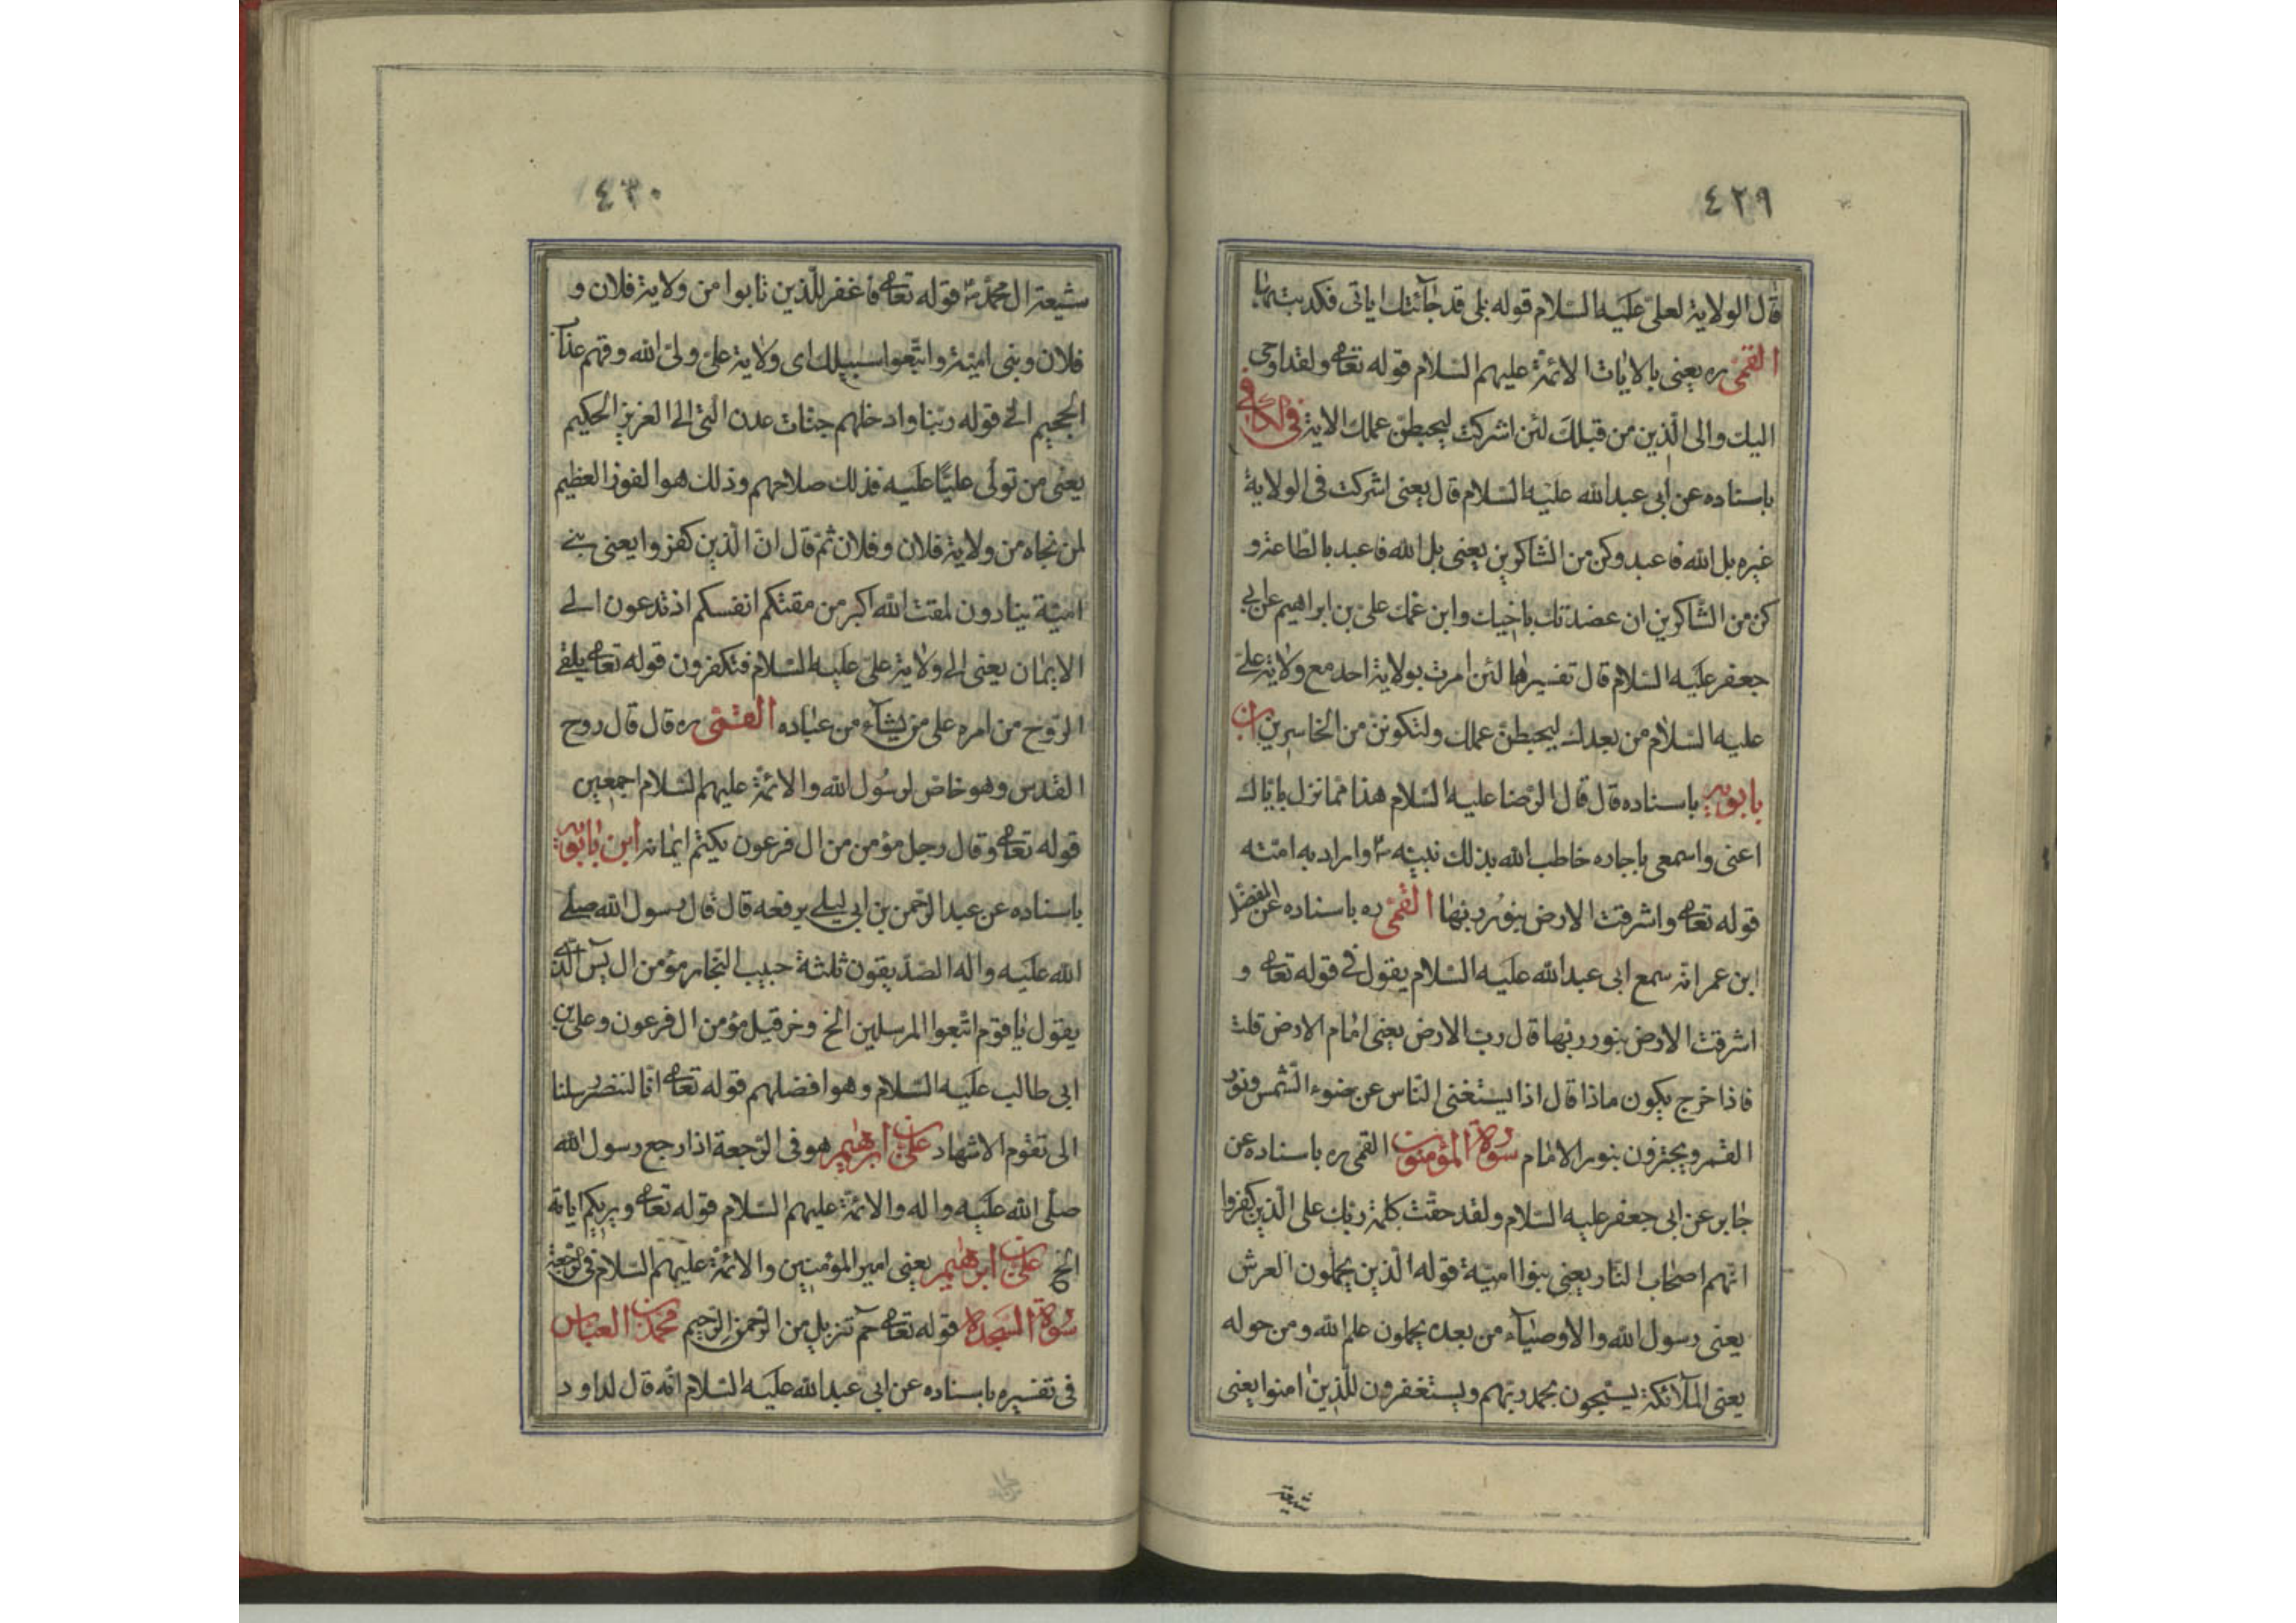 ٤٢٩
قال الولاية لعلى عليه السلام قوله بلى قد جآئتك اياتى فكذبت بها
القمى ره يعنى بالايات الائمة عليهم السلام قوله تعالى ولقد اوحى
اليك والى الذين من قبلك لئن اشركت ليحبطن عملك الاية فى الكافى
باسناده عن ابى عبد الله عليه السلام قال يعنى اشركت فى الولاية
غيره بل الله فاعبد وكن من الشاكرين يعنى بل الله فاعبد بالطاعة و
كن من الشاكرين ان عضدتك باخيك وابن عمك على بن ابراهيم عن ابى
جعفر عليه السلام قال تفسيرها لئن امرت بولاية احد مع ولاية على
عليه السلام من بعدك ليحبطن عملك ولتكونن من الخاسرين ابن
بابويه باسناده قال قال الرضا عليه السلام هذا مما نزل باياك
اعنى واسمعى ياجاره خاطب الله بذلك نبيه ص واراد به امته
قوله تعالى واشرقت الارض بنور ربها القمى ره باسناده عن المفضل
ابن عمر انه سمع ابى عبد الله عليه السلام يقول فى قوله تعالى و
اشرقت الارض بنور ربها قال رب الارض يعنى امام الارض قلت
فاذا خرج يكون ماذا قال اذا يستغنى الناس عن ضوء الشمس ونور
القمر ويجتزون بنور الامام سورة المؤمنون القمى ره باسناده عن
جابر عن ابى جعفر عليه السلام ولقد حقت كلمة ربك على الذين كفروا
انهم اصحاب النار يعنى بنوا امية قوله الذين يحملون العرش
يعنى رسول الله والاوصيآء من بعده يحملون علم الله ومن حوله
يعنى الملآئكة يسبحون بحمد ربهم ويستغفرون للذين امنوا يعنى
شيعة
٤٣٠
شيعة ال محمد ص قوله تعالى فاغفر للذين تابوا من ولاية فلان و
فلان وبنى امية واتبعوا سبيلك اى ولاية على ولى الله وقهم عذاب
الجحيم الى قوله ربنا وادخلهم جنات عدن التى الى العزيز الحكيم
يعنى من تولى عليا عليه فذلك صلاحهم وذلك هو الفوز العظيم
لمن نجاه من ولاية فلان وفلان ثم قال ان الذين كفروا يعنى بنى
امية ينادون لمقت الله اكبر من مقتكم انفسكم اذ تدعون الى
الايمان يعنى الى ولاية على عليه السلام فتكفرون قوله تعالى يلقى
الروح من امره على من يشآء من عباده القمى ره قال قال روح
القدس وهو خاص لرسول الله والائمة عليهم السلام اجمعين
قوله تعالى وقال رجل مؤمن من ال فرعون يكتم ايمانه ابن بابويه
باسناده عن عبد الرحمن بن ابى ليلى يرفعه قال قال رسول الله صلى
الله عليه واله الصديقون ثلثة حبيب النجار مؤمن ال يس الذى
يقول يا قوم اتبعوا المرسلين الخ وخرقيل مؤمن ال فرعون وعلى بن
ابى طالب عليه السلام وهو افضلهم قوله تعالى انا لننصر رسلنا
الى تقوم الاشهاد على بن ابرهيم هو فى الرجعة اذا رجع رسول الله
صلى الله عليه واله والائمة عليهم السلام قوله تعالى ويريكم اياته
الخ على بن ابرهيم يعنى امير المؤمنين والائمة عليهم السلام فى الرجعة
سورة السجدة قوله تعالى حم تنزيل من الرحمن الرحيم محمد بن العباس
فى تفسيره باسناده عن ابى عبد الله عليه السلام انه قال لداود